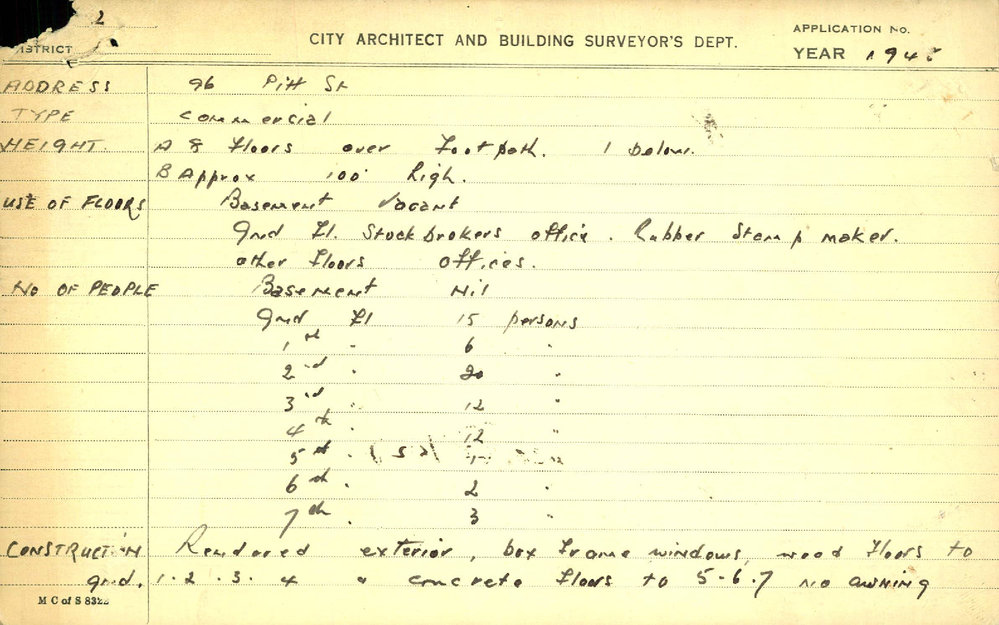 2
DISTRICT
CITY ARCHITECT AND BUILDING SURVEYOR'S DEPT.
APPLICATION NO.
YEAR 194
ADDRESS 96 Pitt St
TYPE Commercial
HEIGHT A 8 Floors over Footpath. 1 below.
B Approx 100' high.
USE OF FLOORS Basement Vacant
Gnd Fl. Stockbrokers office. Rubber Stamp maker.
other floors offices.
No OF PEOPLE Basement Nil
Gnd Fl 15 persons
1st " 6 "
2nd " 20 "
3rd " 12 "
4th 12 "
5th "
6th " 2 "
7th " 3 "
CONSTRUCTION Rendered exterior, box frame windows, wood floors to
gnd. 1. 2. 3. 4 " concrete floors to 5. 6. 7 no awning
M C of S 8322